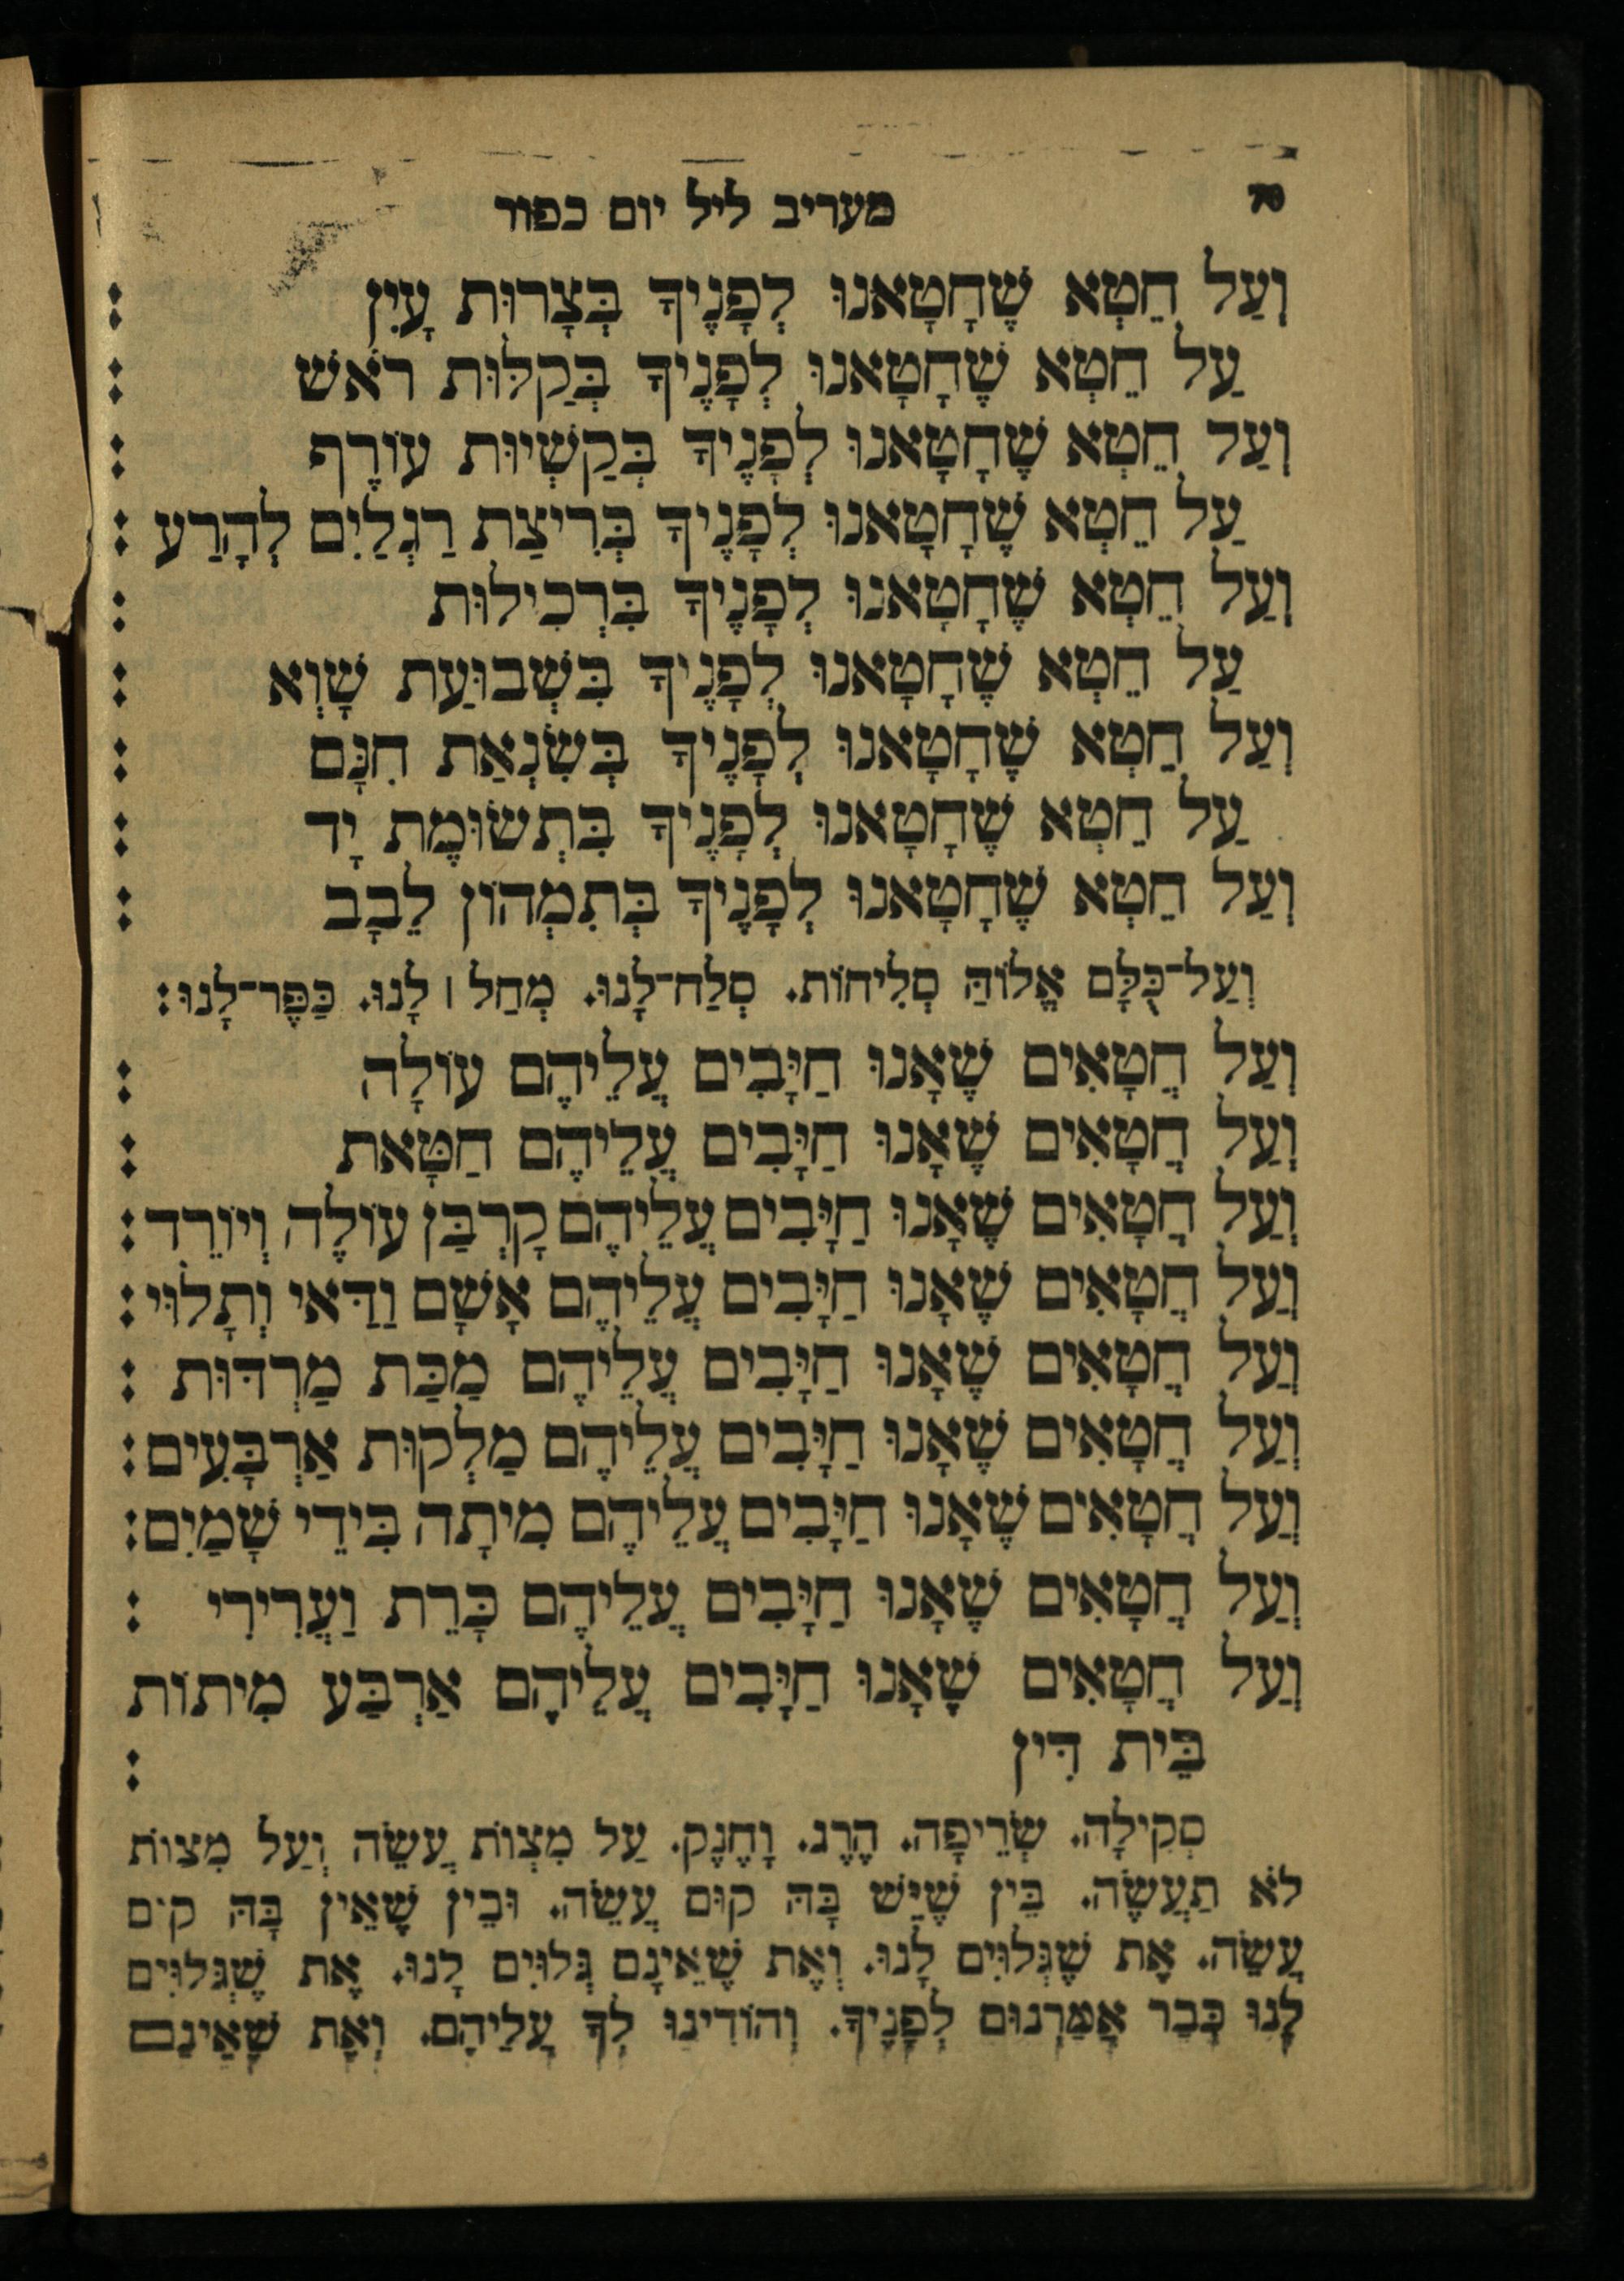 70
מעריב ליל יום כפור
וְעַל חֵטְא שֶׁחָטָאנוּ לְפָנֶיךָ בְּצָרוּת עָיִן :
עַל חֵטְא שֶׁחָטָאנוּ לְפָנֶיךָ בְּקַלּוּת רֹאשׁ :
וְעַל חֵטְא שֶׁחָטָאנוּ לְפָנֶיךָ בְּקַשְׁיוּת עוֹרֶף :
עַל חֵטְא שֶׁחָטָאנוּ לְפָנֶיךָ בְּרִיצַת רַגְלַיִם לְהָרַע :
וְעַל חֵטְא שֶׁחָטָאנוּ לְפָנֶיךָ בִּרְכִילוּת :
עַל חֵטְא שֶׁחָטָאנוּ לְפָנֶיךָ בִּשְׁבוּעַת שָׁוְא :
וְעַל חֵטְא שֶׁחָטָאנוּ לְפָנֶיךָ בְּשִׂנְאַת חִנָּם :
עַל חֵטְא שֶׁחָטָאנוּ לְפָנֶיךָ בִּתְשׂוּמֶת יָד :
וְעַל חֵטְא שֶׁחָטָאנוּ לְפָנֶיךָ בְּתִמְהוֹן לֵבָב :
וְעַל־כֻּלָּם אֱלוֹהַּ סְלִיחוֹת. סְלַח־לָנוּ. מְחַל ׀ לָנוּ. כַּפֶּר־לָנוּ :
וְעַל חֲטָאִים שֶׁאָנוּ חַיָּבִים עֲלֵיהֶם עוֹלָה :
וְעַל חֲטָאִים שֶׁאָנוּ חַיָּבִים עֲלֵיהֶם חַטָּאת :
וְעַל חֲטָאִים שֶׁאָנוּ חַיָּבִים עֲלֵיהֶם קָרְבַּן עוֹלֶה וְיוֹרֵד :
וְעַל חֲטָאִים שֶׁאָנוּ חַיָּבִים עֲלֵיהֶם אָשָׁם וַדַּאי וְתָלוּי :
וְעַל חֲטָאִים שֶׁאָנוּ חַיָּבִים עֲלֵיהֶם מַכַּת מַרְדּוּת :
וְעַל חֲטָאִים שֶׁאָנוּ חַיָּבִים עֲלֵיהֶם מַלְקוּת אַרְבָּעִים :
וְעַל חֲטָאִים שֶׁאָנוּ חַיָּבִים עֲלֵיהֶם מִיתָה בִּידֵי שָׁמַיִם :
וְעַל חֲטָאִים שֶׁאָנוּ חַיָּבִים עֲלֵיהֶם כָּרֵת וַעֲרִירִי :
וְעַל חֲטָאִים שֶׁאָנוּ חַיָּבִים עֲלֵיהֶם אַרְבַּע מִיתוֹת
בֵּית דִּין :
סְקִילָה. שְׂרֵיפָה. הֶרֶג. וָחֶנֶק. עַל מִצְוֹת עֲשֵׂה וְעַל מִצוֹת
לֹא תַעֲשֶׂה. בֵּין שֶׁיֵּשׁ בָּהּ קוּם עֲשֵׂה. וּבֵין שֶׁאֵין בָּהּ ק׳ם
עֲשֵׂה. אֶת שֶׁגְּלוּיִּם לָנוּ. וְאֶת שֶׁאֵינָם גְּלוּיִּם לָנוּ. אֶת שֶׁגְּלוּיִּם
לָנוּ כְּבָר אֲמַרְנוּם לְפָנֶיךָ. וְהוֹדִינוּ לְךָ עֲלֵיהֶם. וְאֶת שֶׁאֵינַם